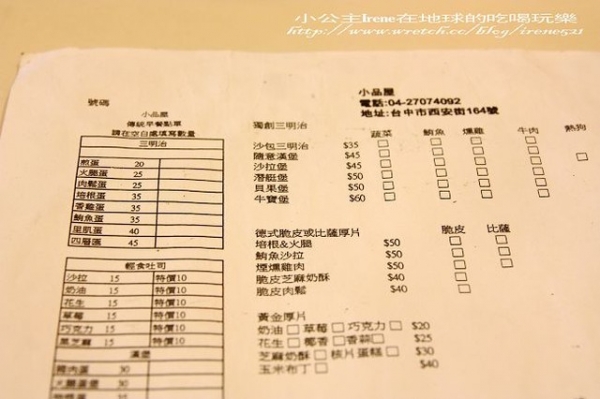 小公主Irene在地球的吃喝玩樂
http://www.wretch.cc/blog/irene521
小品屋
電話:04-27074092
地址:台中市西安街164號
號碼
小品屋
傳統早餐點單
請在空白處填寫數量
三明治
煎蛋 20
火腿蛋 25
肉鬆蛋 25
培根蛋 35
香雞蛋 35
鮪魚蛋 35
里肌蛋 40
四層蛋 45
輕食吐司
沙拉 15 特價10
奶油 15 特價10
花生 15 特價10
草莓 15 特價10
巧克力 15 特價10
黑芝麻 15 特價10
漢堡
豬肉蛋 30
火腿蛋堡 30
獨創三明治 蔬菜 鮪魚 燻雞 牛肉 熱狗
沙包三明治 $35 □ □ □ □ □
隨意漢堡 $45 □ □ □ □
沙拉堡 $45 □ □ □ □
潛艇堡 $50 □ □ □ □
貝果堡 $50 □ □ □ □
牛寶堡 $60 □ □ □ □
德式脆皮或比薩厚片 脆皮 比薩
培根&火腿 $50 □ □
鮪魚沙拉 $50 □ □
煙燻雞肉 $50 □ □
脆皮芝麻奶酥 $40 □ □
脆皮肉鬆 $40 □ □
黃金厚片
奶油□ 草莓□ 巧克力□ $20
花生□ 椰香□ 香蒜□ $25
芝麻奶酥□ 核片蛋糕□ $30
玉米布丁□ $40